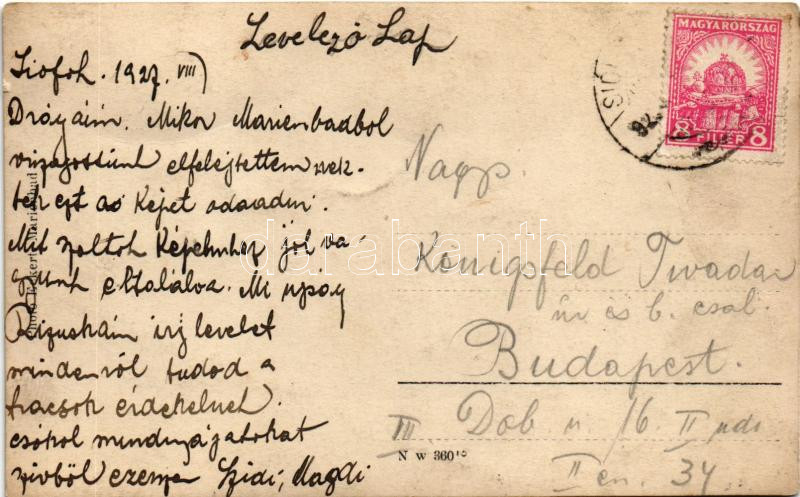 Levelező Lap
Siofok. 1927. VIII)
Drágáim. Mikor Marienbadbol
vissza jöttünk elfelejtettem nek-
tek ezt a Képet odaadni.
Mit szoltok Képeinkhez jól va-
gyunk eltalálva. Mi ujság
Rózuskám irj levelet
mindenről tudod a
tracsok érdekelnek.
csókol mindnyájatokat
szivből Szidi, Magdi
MAGYARORSZÁG
8 FILLÉR 8
SIÓ
Nagys.
Königsfeld Tivadar
úr és b. csal.
Budapest.
Dob u. 16. II udv.
III
II em. 34.
N w 360
Marienbad
darabanth